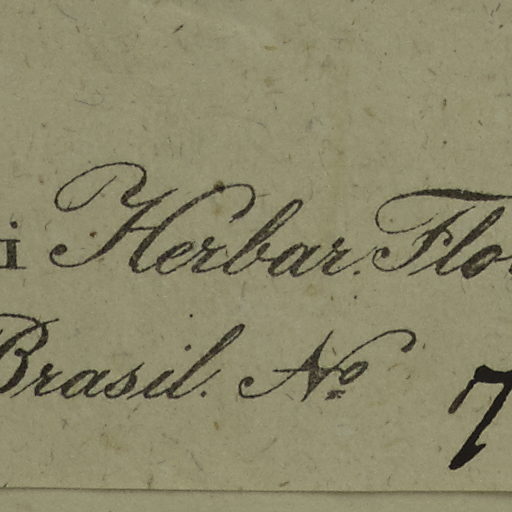 i Herbar. Flor
Brasil. No. 7